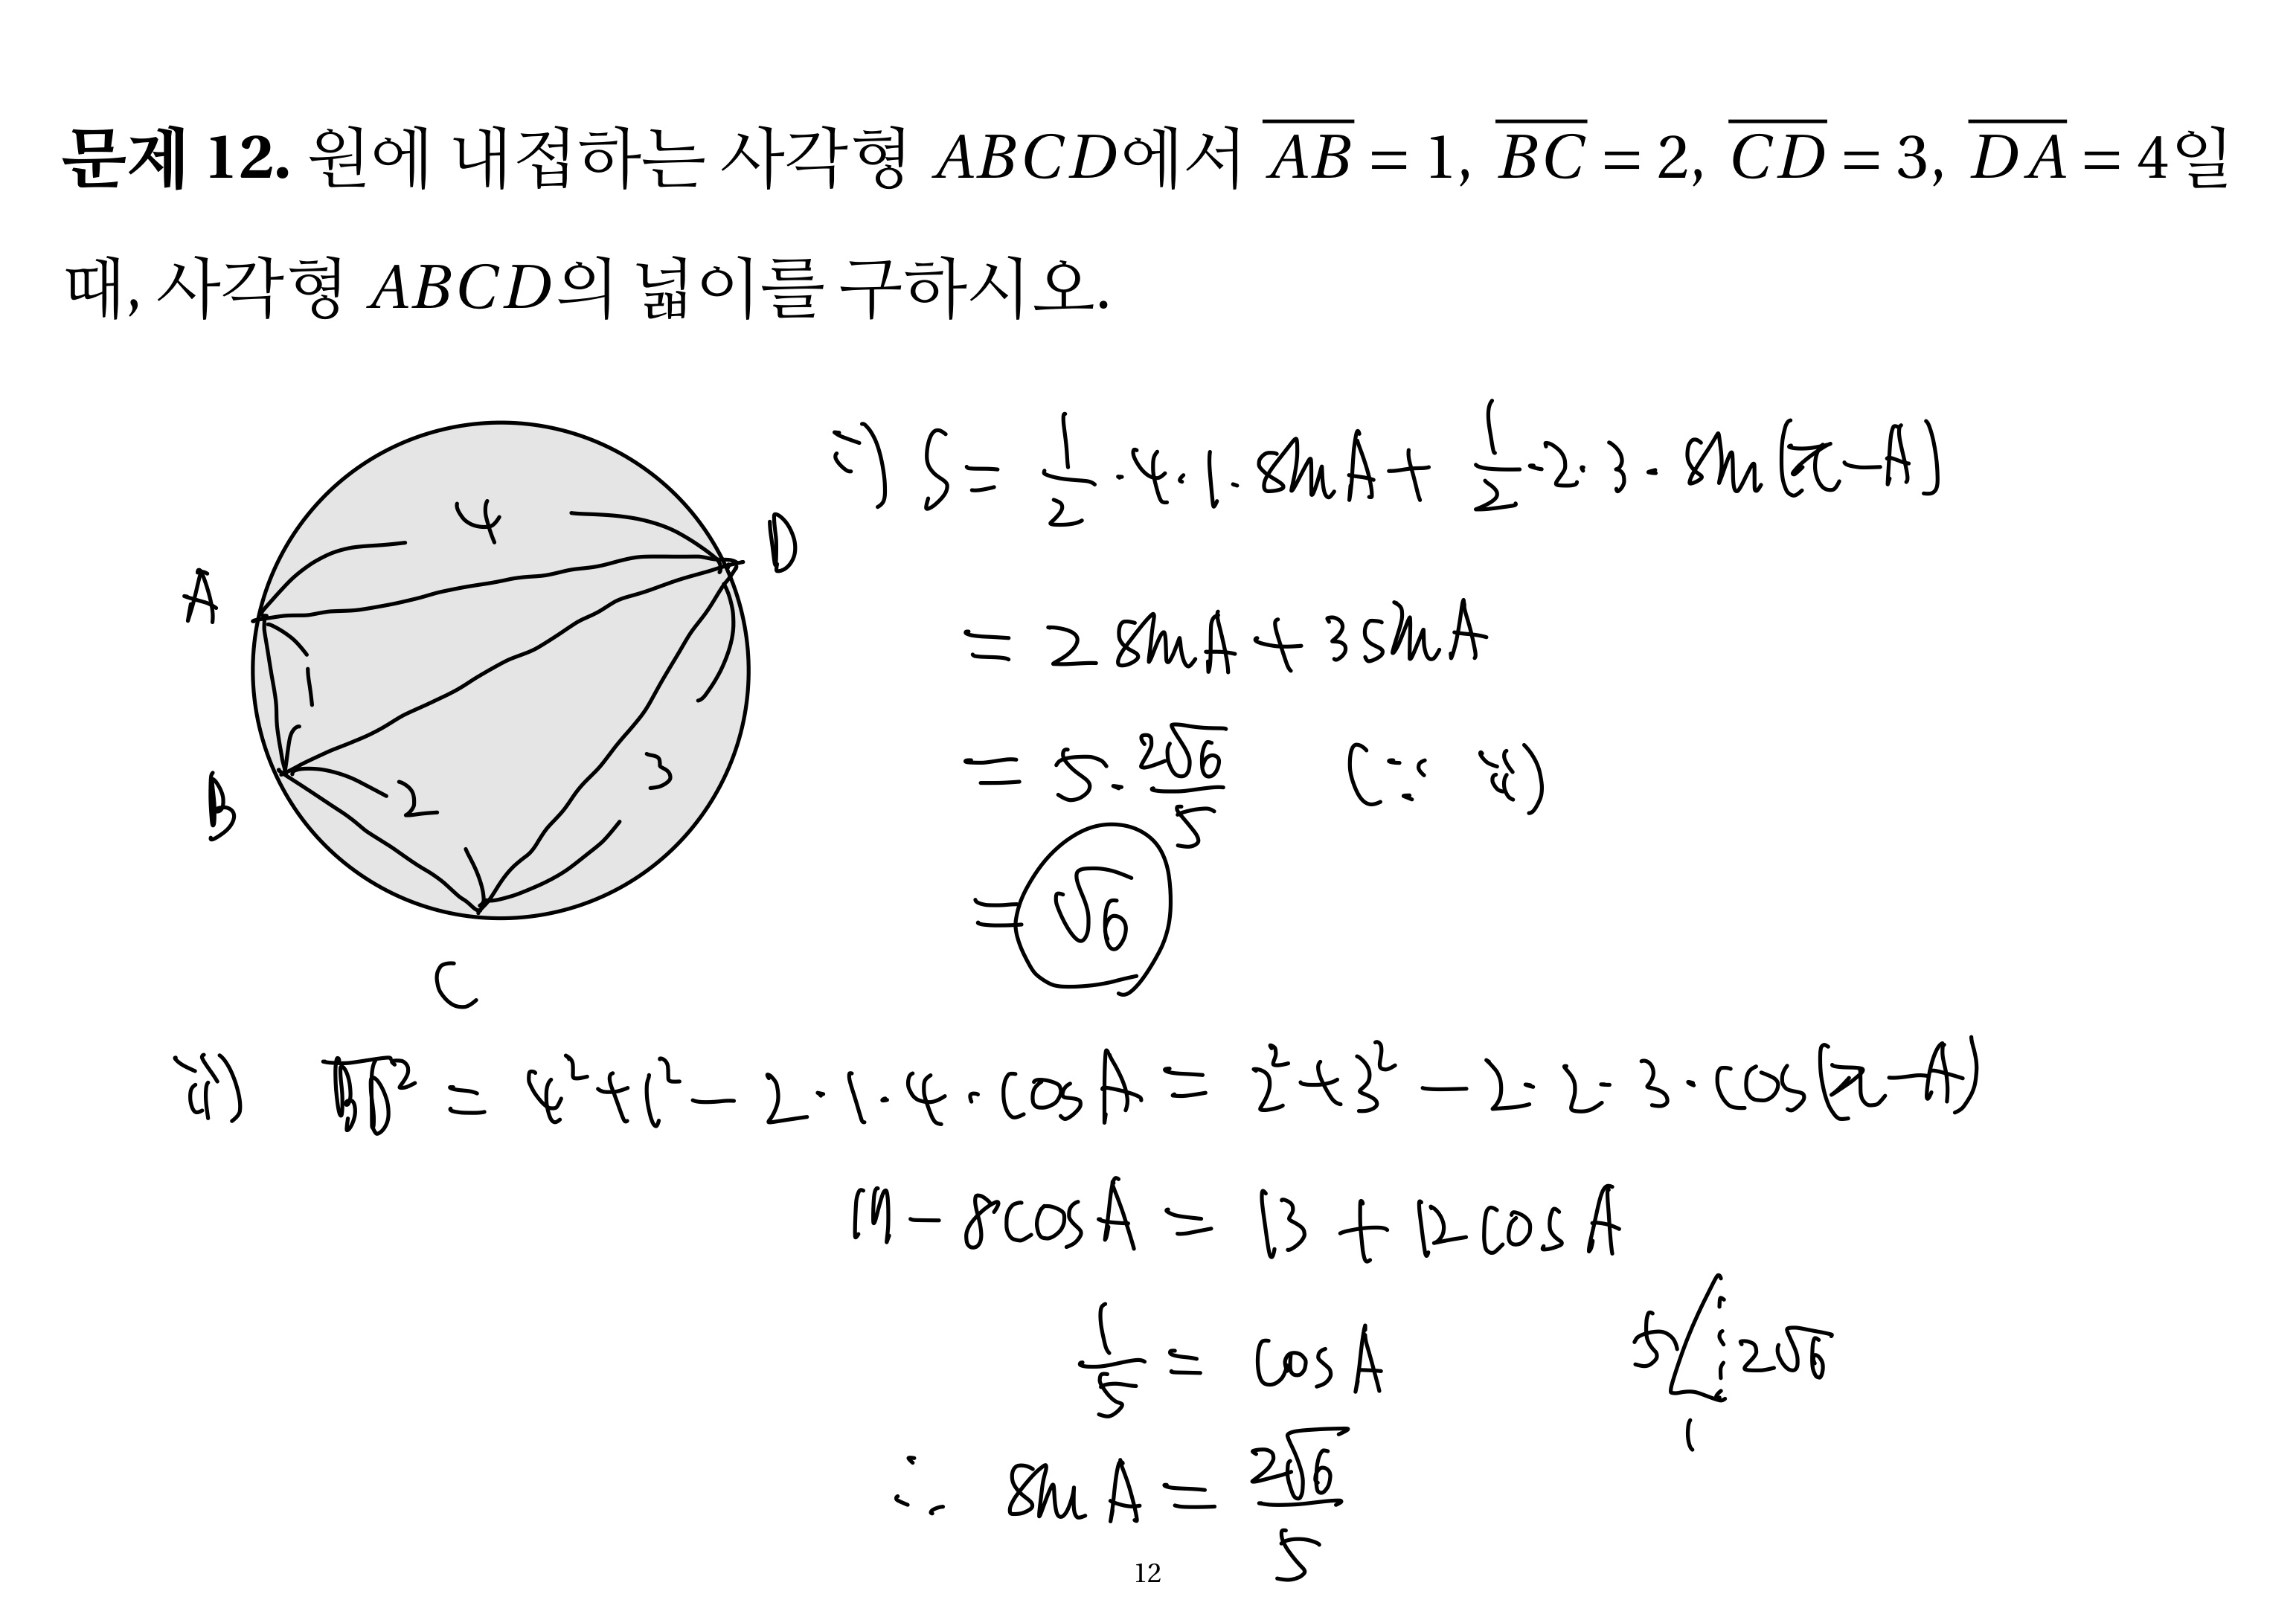 문제 12. 원에 내접하는 사각형 ABCD에서 \overline{AB} = 1, \overline{BC} = 2, \overline{CD} = 3, \overline{DA} = 4일
때, 사각형 ABCD의 넓이를 구하시오.
A
B
C
D
4
1
2
3
i) S = \frac{1}{2}·4·1·sinA + \frac{1}{2}·2·3·sin(π-A)
= 2sinA + 3sinA
= 5·\frac{2√6}{5} (∵ ii)
= √6
ii) \overline{BD}² = 4²+1²-2·1·4·cosA = 2²+3²-2·2·3·cos(π-A)
17-8cosA = 13+12cosA
\frac{1}{5} = cosA
5 2√6
1
∴ sinA = \frac{2√6}{5}
12